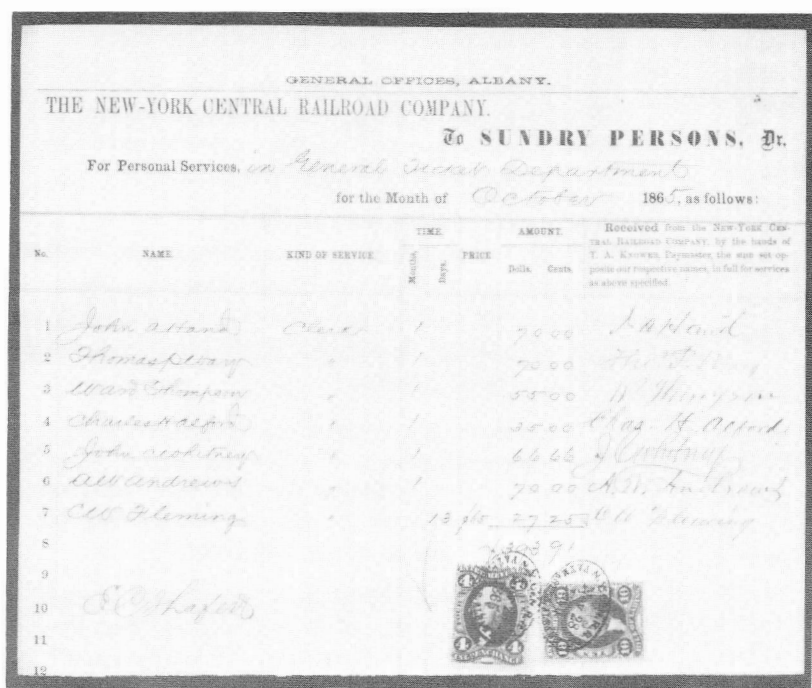 GENERAL OFFICES, ALBANY.
THE NEW-YORK CENTRAL RAILROAD COMPANY.
To SUNDRY PERSONS, Dr.
For Personal Services, in General Ticket Department
for the Month of October 1865, as follows:
No. NAME. KIND OF SERVICE TIME. Months. Days. PRICE AMOUNT. Dolls. Cents.
Received from the NEW-YORK CEN-
TRAL RAILROAD COMPANY, by the hands of
T. A. KNOWER, Paymaster, the sum set op-
posite our respective names, in full for services
as above specified.
1 John A Hand Clerk 1 70 00 J A Hand
2 Thomas 〃 1 70 00
3 Ward Thompson 〃 1 55 00 W Thompson
4 Charles H Alford 〃 1 35 00 Chas. H Alford
5 John Whitney 〃 1 66 66 J Whitney
6 AW Andrews 〃 1 70 00 A. W. Andrews
7 CW Fleming 〃 13 27 25 C W Fleming
8
9
10
11
12
4 4
4 4
10 10
10 10